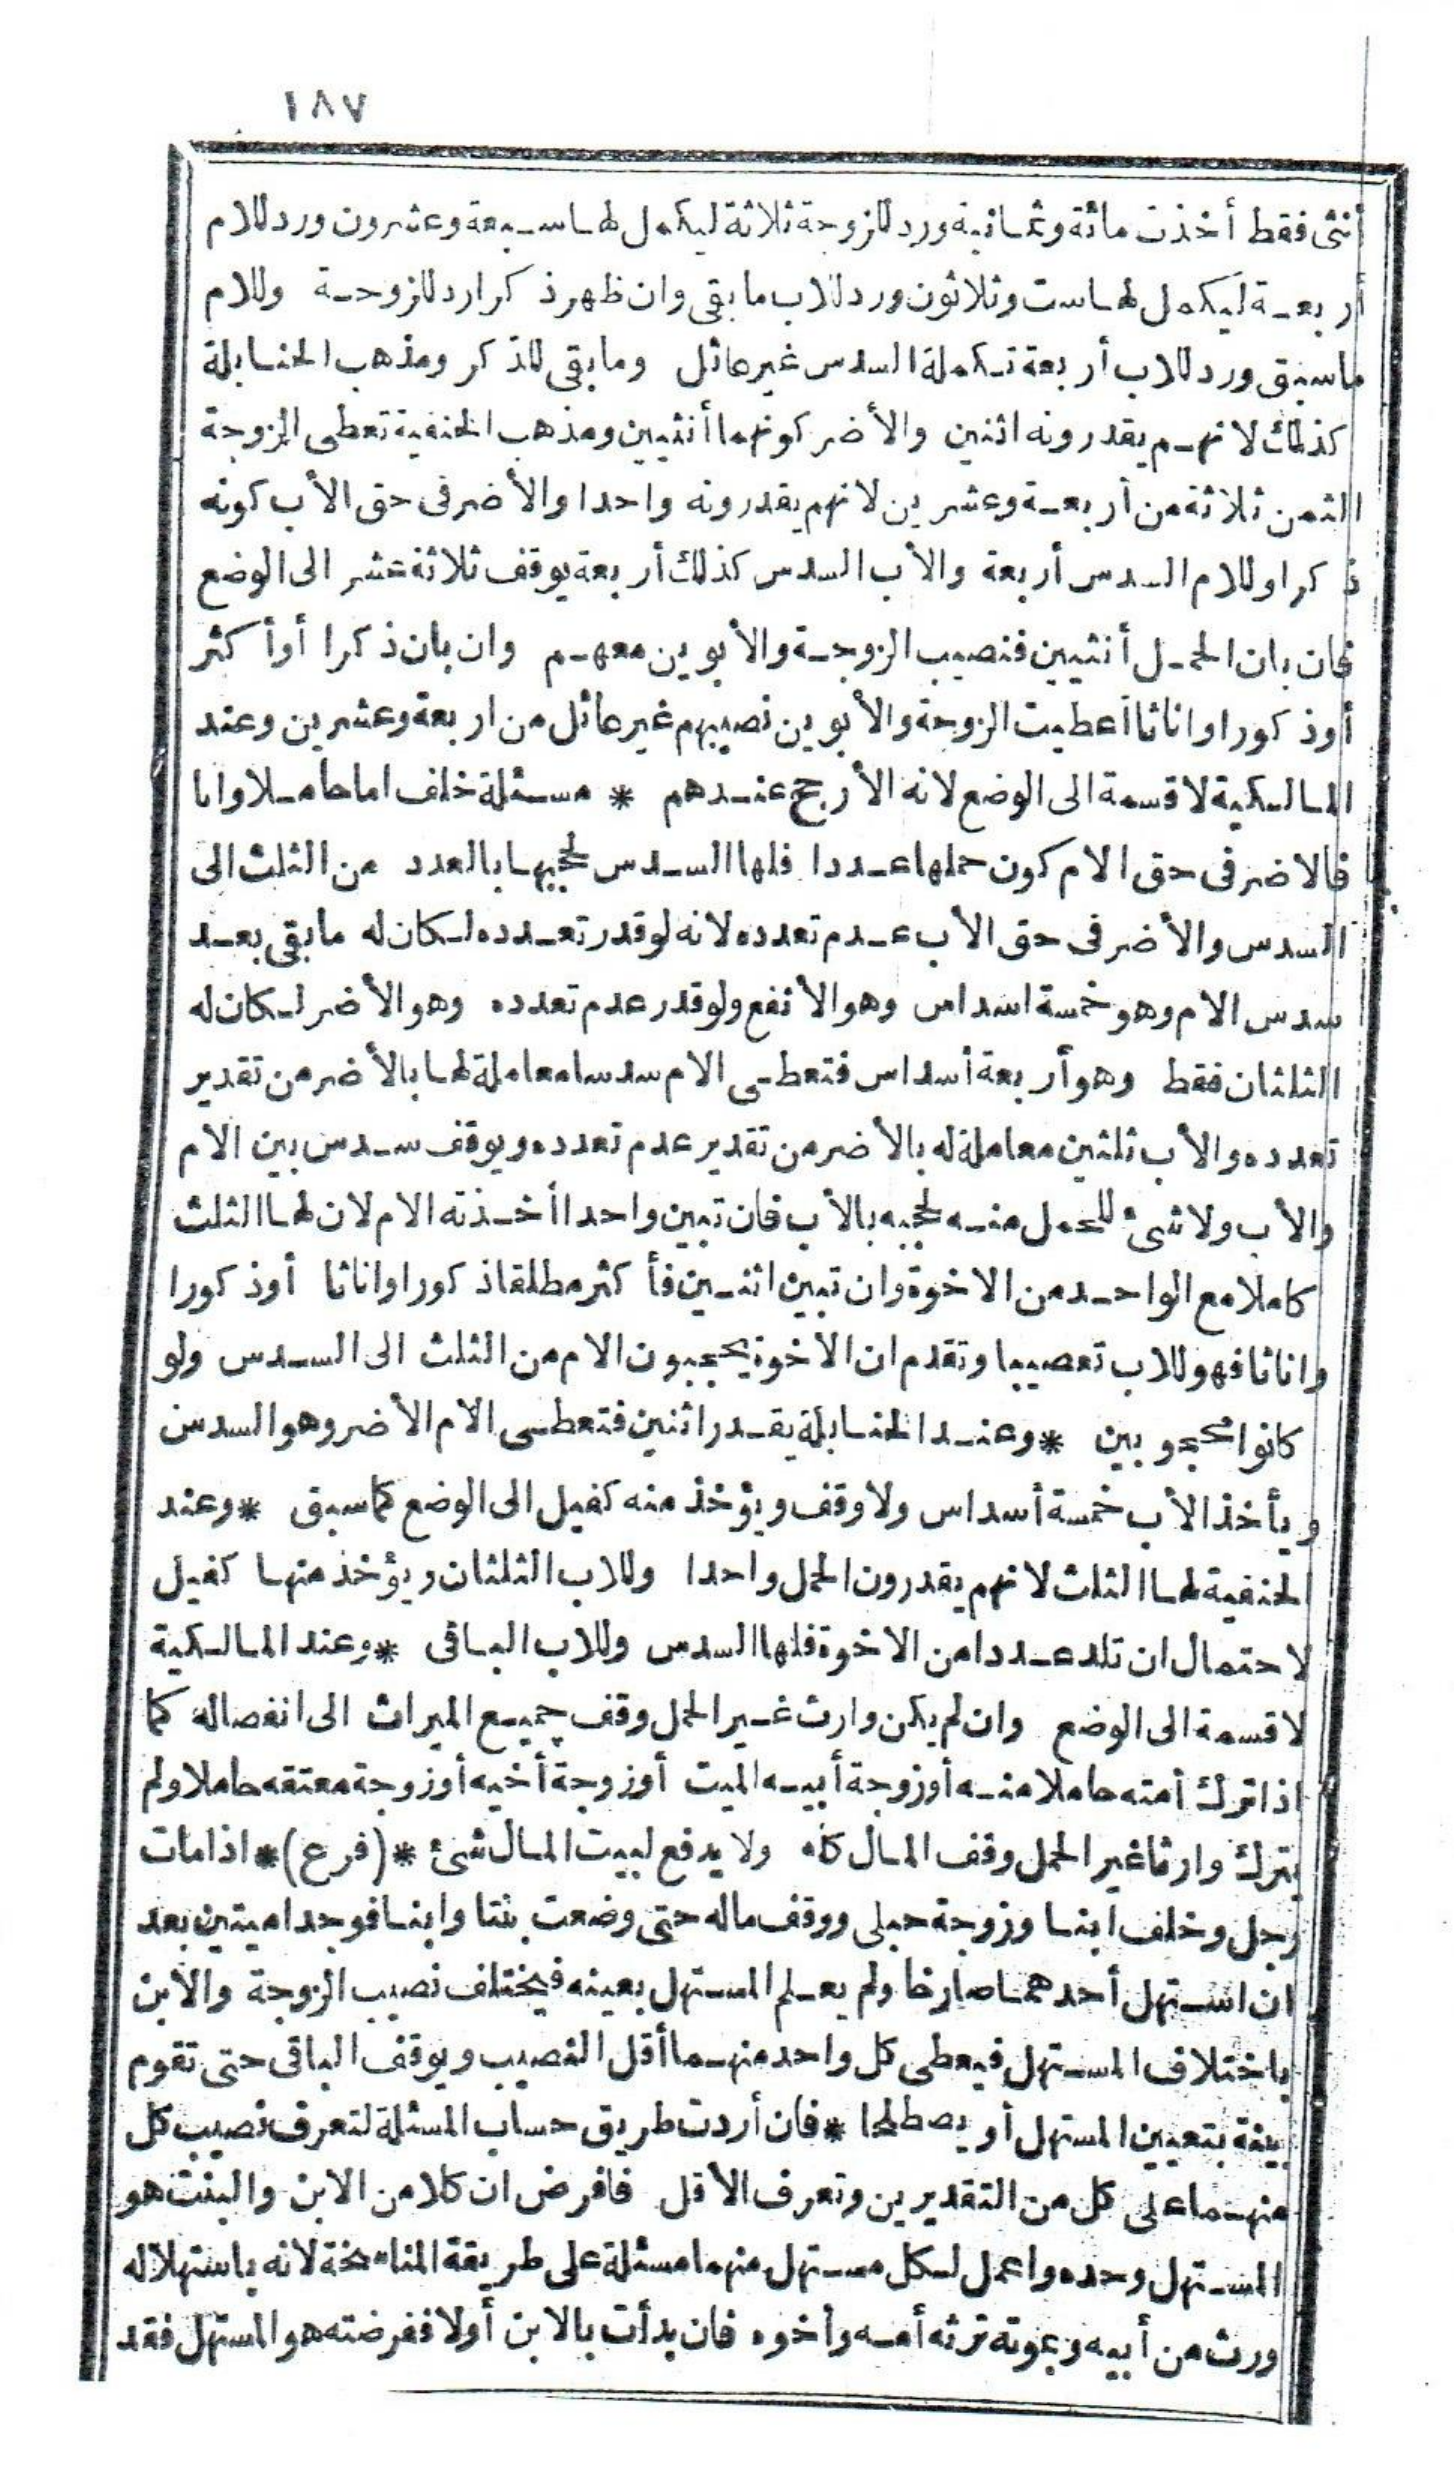 ١٨٧
أنثى فقط أخذت مائة وثمانية ورد للزوجة ثلاثة ليكمل لها سبعة وعشرون ورد للام
أربعة ليكمل لها ست وثلاثون ورد للاب ما بقى وان ظهر ذكرا رد للزوجة وللام
ما سبق ورد للاب أربعة تكملة السدس غير عائل وما بقى للذكر ومذهب الحنابلة
كذلك لانهم يقدرونه اثنين والأضر كونهما أنثيين ومذهب الحنفية تعطى الزوجة
الثمن ثلاثة من أربعة وعشرين لانهم يقدرونه واحدا والأضر فى حق الأب كونه
ذكرا وللام السدس أربعة والأب السدس كذلك أربعة يوقف ثلاثة عشر الى الوضع
فان بان الحمل أنثيين فنصيب الزوجة والأبوين معهم وان بان ذكرا أو أكثر
أو ذكورا واناثا أعطيت الزوجة والأبوين نصيبهم غير عائل من اربعة وعشرين وعند
المالكية لا قسمة الى الوضع لانه الأرجح عندهم * مسئلة خلف اما حاملا وابا
فالاضر فى حق الام كون حملها عددا فلها السدس لحجبها بالعدد من الثلث الى
السدس والأضر فى حق الأب عدم تعدده لانه لو قدر تعدده لكان له ما بقى بعد
سدس الام وهو خمسة اسداس وهو الأنفع ولو قدر عدم تعدده وهو الأضر لكان له
الثلثان فقط وهو أربعة أسداس فتعطى الام سدسا معاملة لها بالأضر من تقدير
تعدده والأب ثلثين معاملة له بالأضر من تقدير عدم تعدده ويوقف سدس بين الام
والأب ولا شئ للحمل منه لحجبه بالأب فان تبين واحدا أخذته الام لان لها الثلث
كاملا مع الواحد من الاخوة وان تبين اثنين فأكثر مطلقا ذكورا واناثا أو ذكورا
واناثا فهو للاب تعصيبا وتقدم ان الأخوة يحجبون الام من الثلث الى السدس ولو
كانوا محجوبين * وعند الحنابلة يقدر اثنين فتعطى الام الأضر وهو السدس
ويأخذ الأب خمسة أسداس ولا وقف ويؤخذ منه كفيل الى الوضع كما سبق * وعند
الحنفية لها الثلث لانهم يقدرون الحمل واحدا وللاب الثلثان ويؤخذ منها كفيل
لاحتمال ان تلد عددا من الاخوة فلها السدس وللاب الباقى * وعند المالكية
لا قسمة الى الوضع وان لم يكن وارث غير الحمل وقف جميع الميراث الى انفصاله كما
اذا ترك أمته حاملا منه أو زوجة أبيه الميت أو زوجة أخيه أو زوجة معتقه حاملا ولم
يترك وارثا غير الحمل وقف المال كله ولا يدفع لبيت المال شئ * (فرع) * اذا مات
رجل وخلف ابنا وزوجة حبلى ووقف ماله حتى وضعت بنتا وابنا فوجدا ميتين بعد
ان استهل أحدهما صارخا ولم يعلم المستهل بعينه فيختلف نصيب الزوجة والأبن
باختلاف المستهل فيعطى كل واحد منهما أقل النصيب ويوقف الباقى حتى تقوم
بينة بتعيين المستهل أو يصطلحا * فان أردت طريق حساب المسئلة لتعرف نصيب كل
منهما على كل من التقديرين وتعرف الأقل فافرض ان كلا من الابن والبنت هو
المستهل وحده واعمل لكل مستهل منهما مسئلة على طريقة المناسخة لانه باستهلاله
ورث من أبيه وبموته ترثه أمه وأخوه فان بدأت بالابن أولا ففرضته هو المستهل فقد